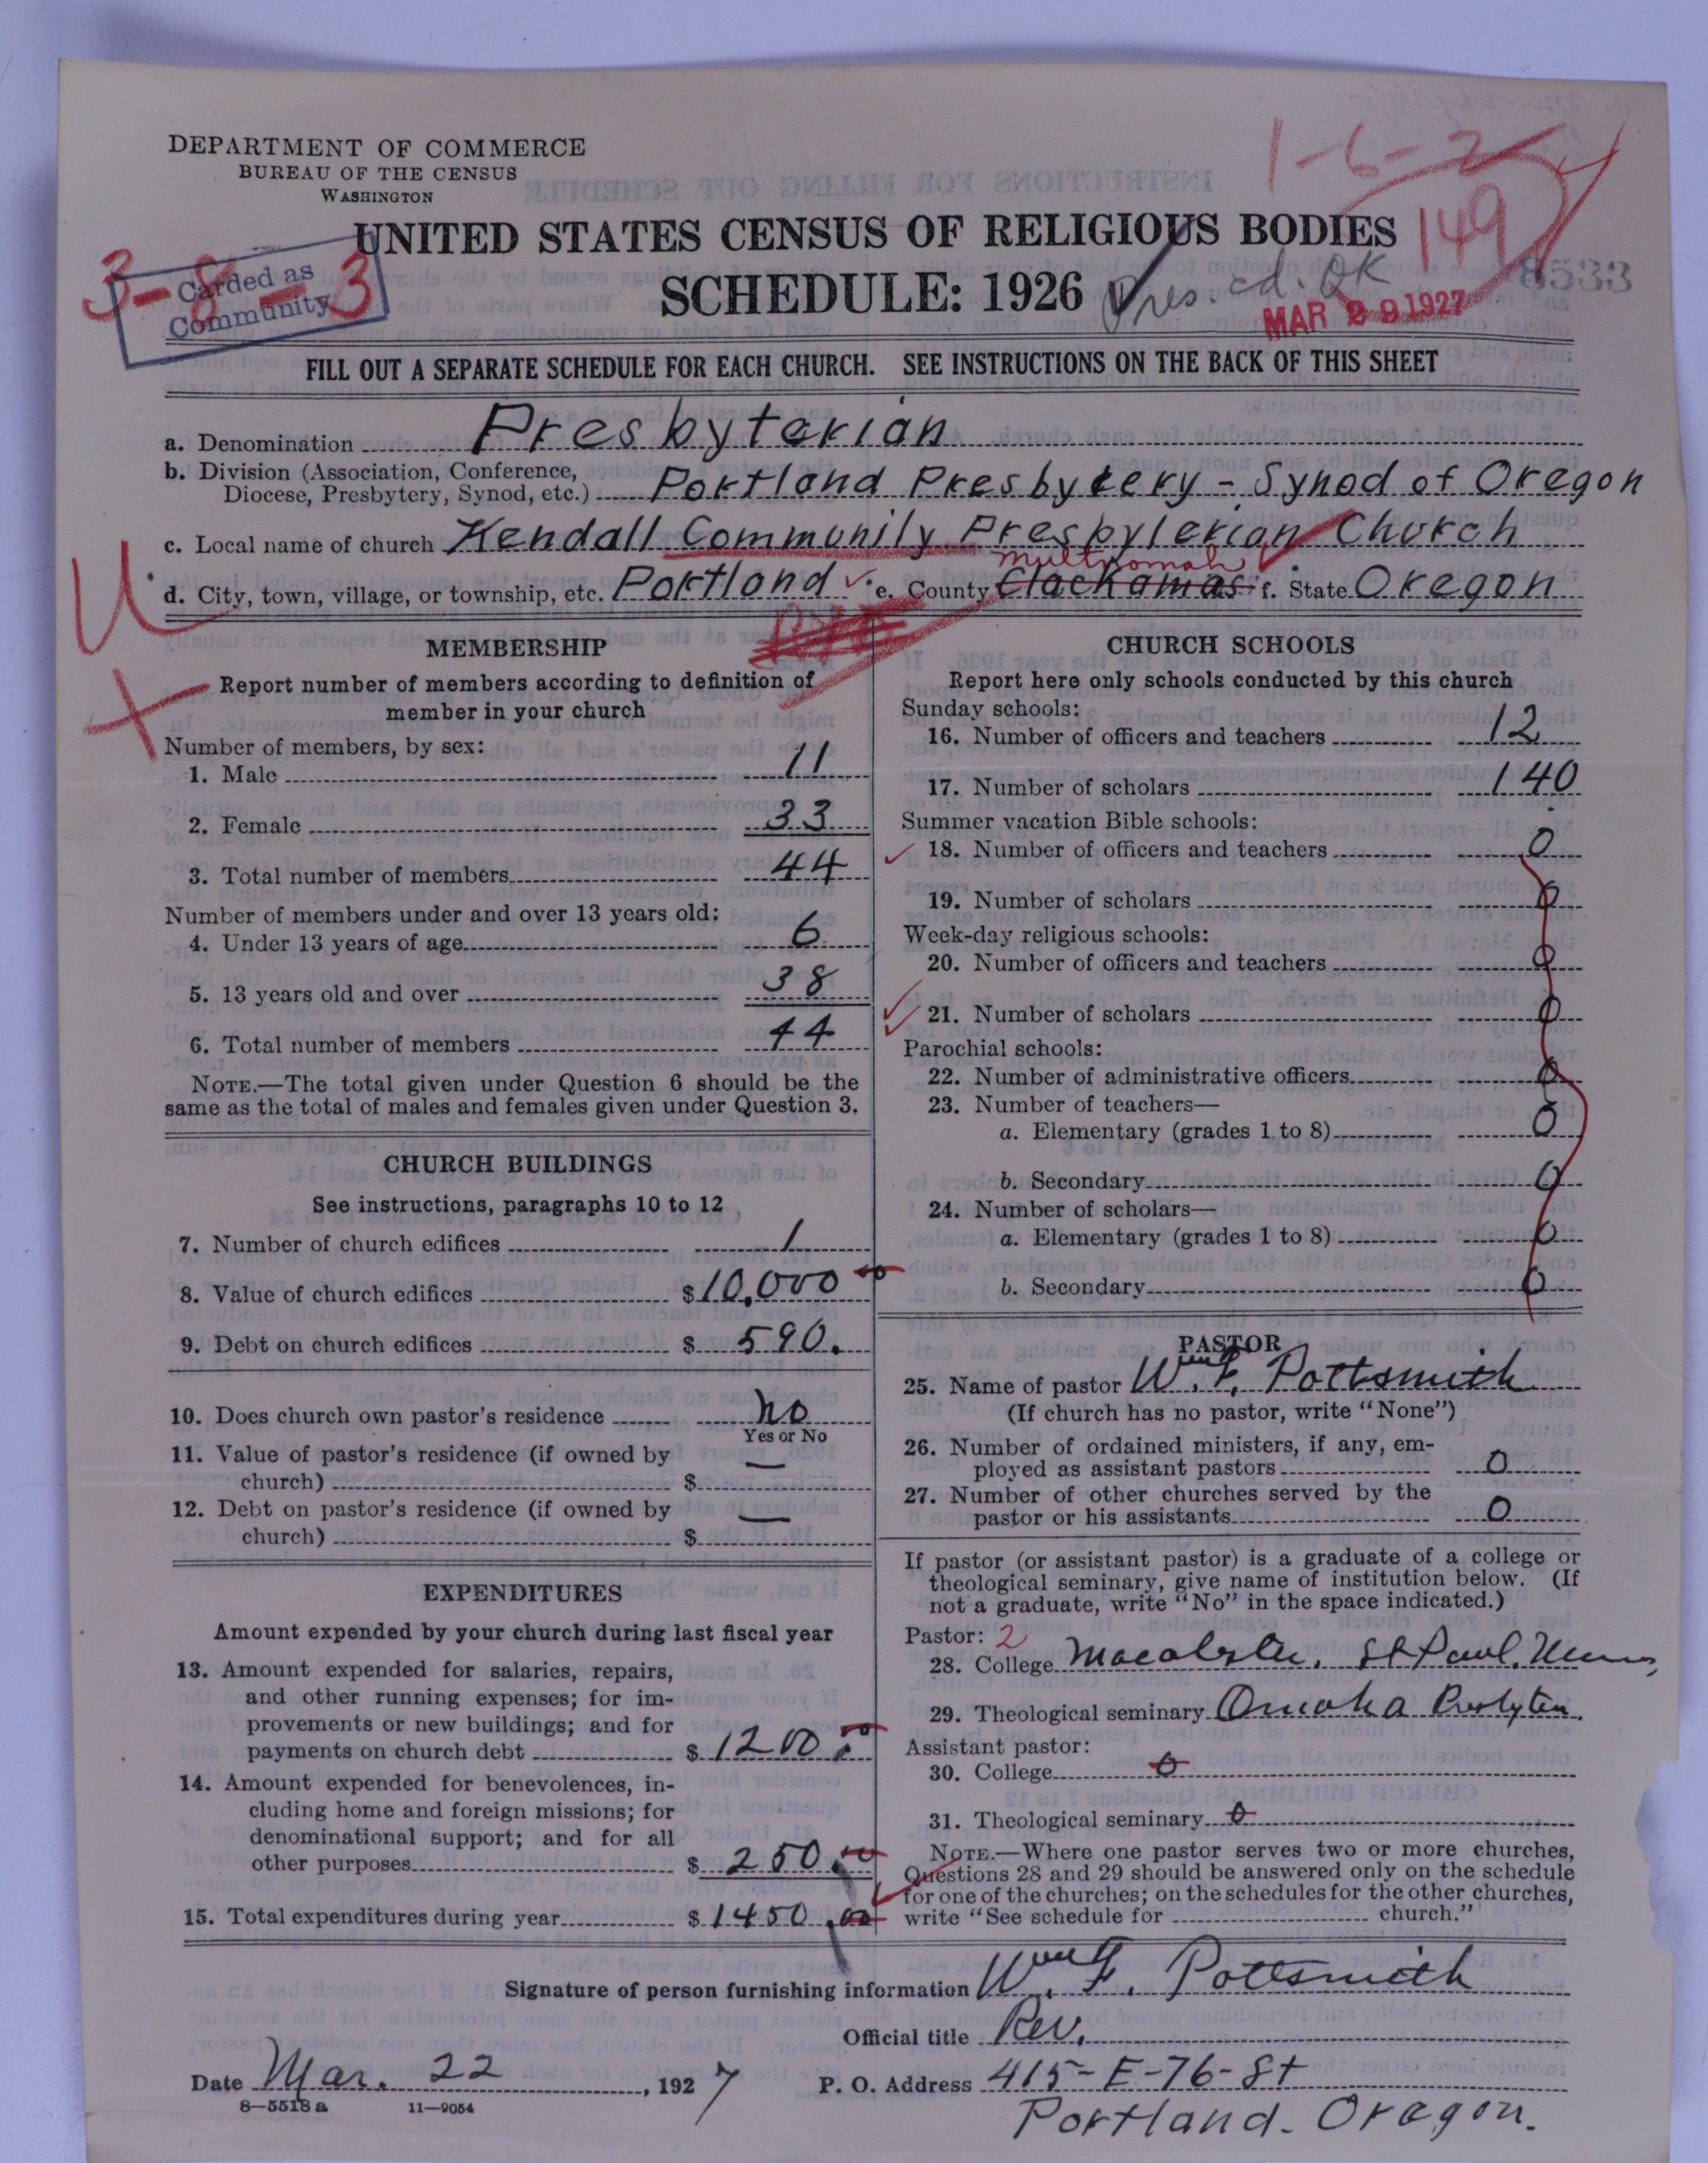 1-6-2
DEPARTMENT OF COMMERCE
BUREAU OF THE CENSUS
WASHINGTON
UNITED STATES CENSUS OF RELIGIOUS BODIES
149
3-8-3
Carded as
Community
SCHEDULE: 1926
Pres. cd. OK
8533
MAR 29 1927
FILL OUT A SEPARATE SCHEDULE FOR EACH CHURCH. SEE INSTRUCTIONS ON THE BACK OF THIS SHEET
a. Denomination Presbyterian
b. Division (Association, Conference, Diocese, Presbytery, Synod, etc.) Portland Presbytery - Synod of Oregon
c. Local name of church Kendall Community Presbyterian Church
multnomah
d. City, town, village, or township, etc. Portland e. County Clackamas f. State Oregon
MEMBERSHIP
Report number of members according to definition of
member in your church
Number of members, by sex:
1. Male 11
2. Female 33
3. Total number of members 44
Number of members under and over 13 years old:
4. Under 13 years of age 6
5. 13 years old and over 38
6. Total number of members 44
NOTE.—The total given under Question 6 should be the
same as the total of males and females given under Question 3.
CHURCH BUILDINGS
See instructions, paragraphs 10 to 12
7. Number of church edifices 1
8. Value of church edifices $10,000
9. Debt on church edifices $ 590.
10. Does church own pastor's residence no
Yes or No
11. Value of pastor's residence (if owned by
church) $ —
12. Debt on pastor's residence (if owned by
church) $ —
EXPENDITURES
Amount expended by your church during last fiscal year
13. Amount expended for salaries, repairs,
and other running expenses; for im-
provements or new buildings; and for
payments on church debt $ 1200.
14. Amount expended for benevolences, in-
cluding home and foreign missions; for
denominational support; and for all
other purposes $ 250.
15. Total expenditures during year $ 1450.00
CHURCH SCHOOLS
Report here only schools conducted by this church
Sunday schools:
16. Number of officers and teachers 12
17. Number of scholars 140
Summer vacation Bible schools:
18. Number of officers and teachers 0
19. Number of scholars 0
Week-day religious schools:
20. Number of officers and teachers 0
21. Number of scholars 0
Parochial schools:
22. Number of administrative officers 0
23. Number of teachers—
a. Elementary (grades 1 to 8) 0
b. Secondary 0
24. Number of scholars—
a. Elementary (grades 1 to 8) 0
b. Secondary 0
PASTOR
25. Name of pastor Wm. F. Pottsmith
(If church has no pastor, write "None")
26. Number of ordained ministers, if any, em-
ployed as assistant pastors 0
27. Number of other churches served by the
pastor or his assistants 0
If pastor (or assistant pastor) is a graduate of a college or
theological seminary, give name of institution below. (If
not a graduate, write "No" in the space indicated.)
Pastor: 2
28. College Macalster. St Paul. Minn,
29. Theological seminary Omaha
Assistant pastor:
30. College 0
31. Theological seminary 0
NOTE.—Where one pastor serves two or more churches,
Questions 28 and 29 should be answered only on the schedule
for one of the churches; on the schedules for the other churches,
write "See schedule for church."
Signature of person furnishing information Wm. F. Pottsmith
Official title Rev.
Date Mar. 22, 1927 P. O. Address 415-E-76-St
8—5518a 11—9054
Portland. Oregon.